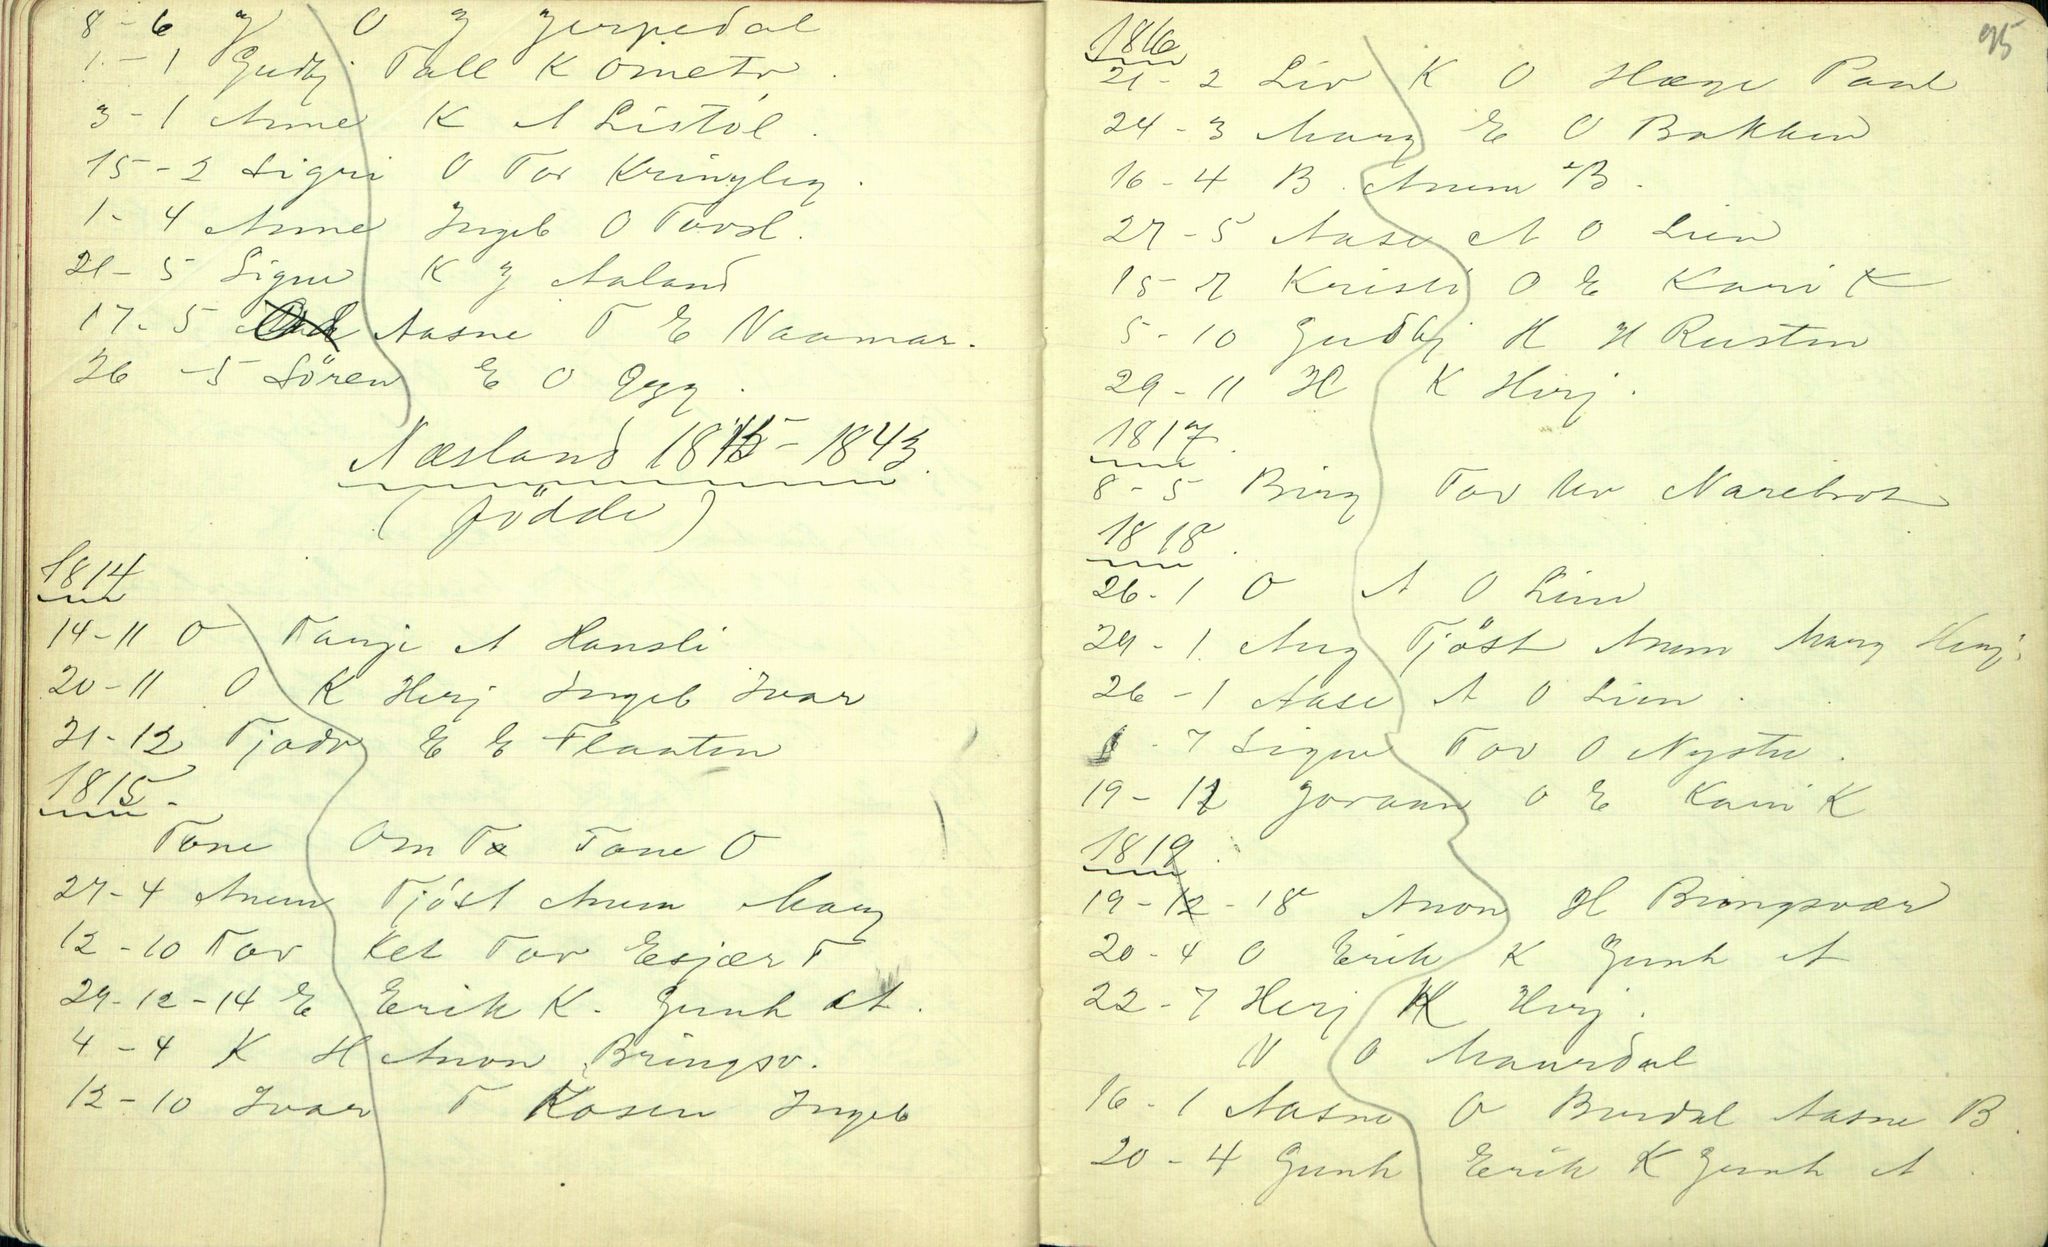 8 - 6 G O G Jerpedal
1 - 1 Gudbj Tall K Ometv.
3 - 1 Anne K A Listöl.
15 - 2 Sigri O Tor Kringleg.
1 - 4 Anne Ingeb O Tovsl.
21 - 5 Signe K G Aaland
17 - 5 Aasne T E Vaamar.
26 - 5 Sören E O Gygr.
Næsland 1815 - 1843.
(födde)
1814
14 - 11 O Tarje A Hansli
20 - 11 O K Herj Ingeb Ivar
21 - 12 Tjødv E E Flaaten
1815
Tone Om Ta Tone O
27 - 4 Anum Tjöst Anum Marg
12 - 10 Tov Ket Tov Esjær T
29 - 12 - 14 E Erik K. Gunh A.
4 - 4 K H Anon Bringsv.
12 - 10 Ivar T Kosen Ingeb
95
1816
21 - 2 Liv K O Hæge Paul
24 - 3 Marg E O Bakken
16 - 4 B. Anum B.
27 - 5 Aase A O Lien
15 - 7 Kristi O E Kari K
5 - 10 Gudbj H H Rustin
29 - 11 H K Herj.
1817.
8 - 5 Birg Tov Nerebröt
1818.
26 - 1 O A O Lien
29 - 1. Aug Tjöst Anum Marg Herj.
26 - 1 Aase A O Lien.
- 7 Signe Tov O Nystu.
19 - 12 Joraan O E Kari K
1819.
19 - 12 - 18 Anon H Bringsvær
20 - 4 O Erik K Gunh A
22 - 7 Herj K Herj.
N O Maurdal
16 - 1 Aasne O Burdal Aasne B.
20 - 4 Gunh Erik K Gunh A